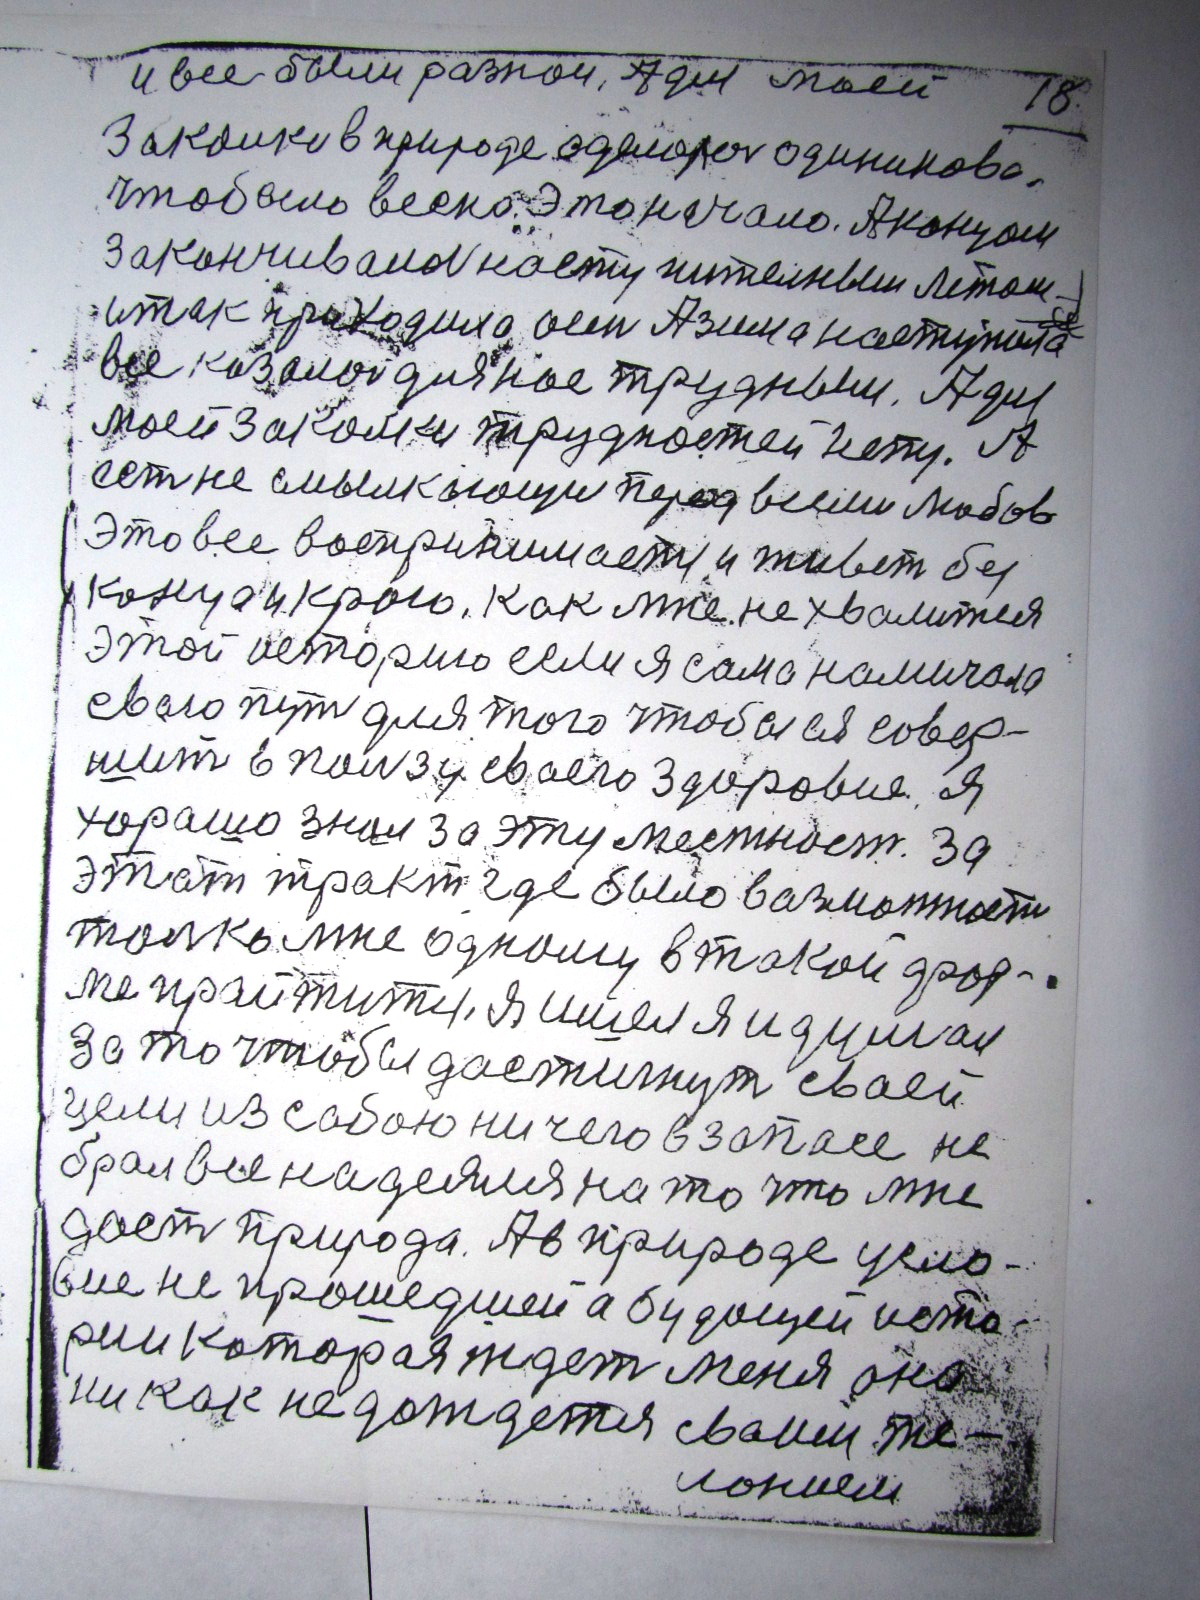 и все были разной, А для моей 18
Закалки в природе сделорсч одиникова.
что было весна. Это начало. А концом
Закончивалсч наступительным летом
и так приходила осен А зима наступила
все казалось для нас трудным. А для
моей Закалки трудностей нету. А
ест не смыкающи перед всеми любов
Это все воспринимаеты и живет без
конца и краю. Как мне не хвалится
этой историю если я сама намичала
сваю пут для того чтобы ся совер-
шит в ползу сваего Здоровие. Я
хорашо знал За эту местност. За
этат тракт где было вазможности
толко мне одному в такой фор-
ме прайтиты. Я ишел я и думал
За то чтобы дастигнут сваей
цели из сабою ничего в запасе не
брал все надеялся на то что мне
даст природа. А в природе усло-
вие не прошедшей а будущей исто-
рии которая ждет меня она
никак не дождется сваим же-
ланием